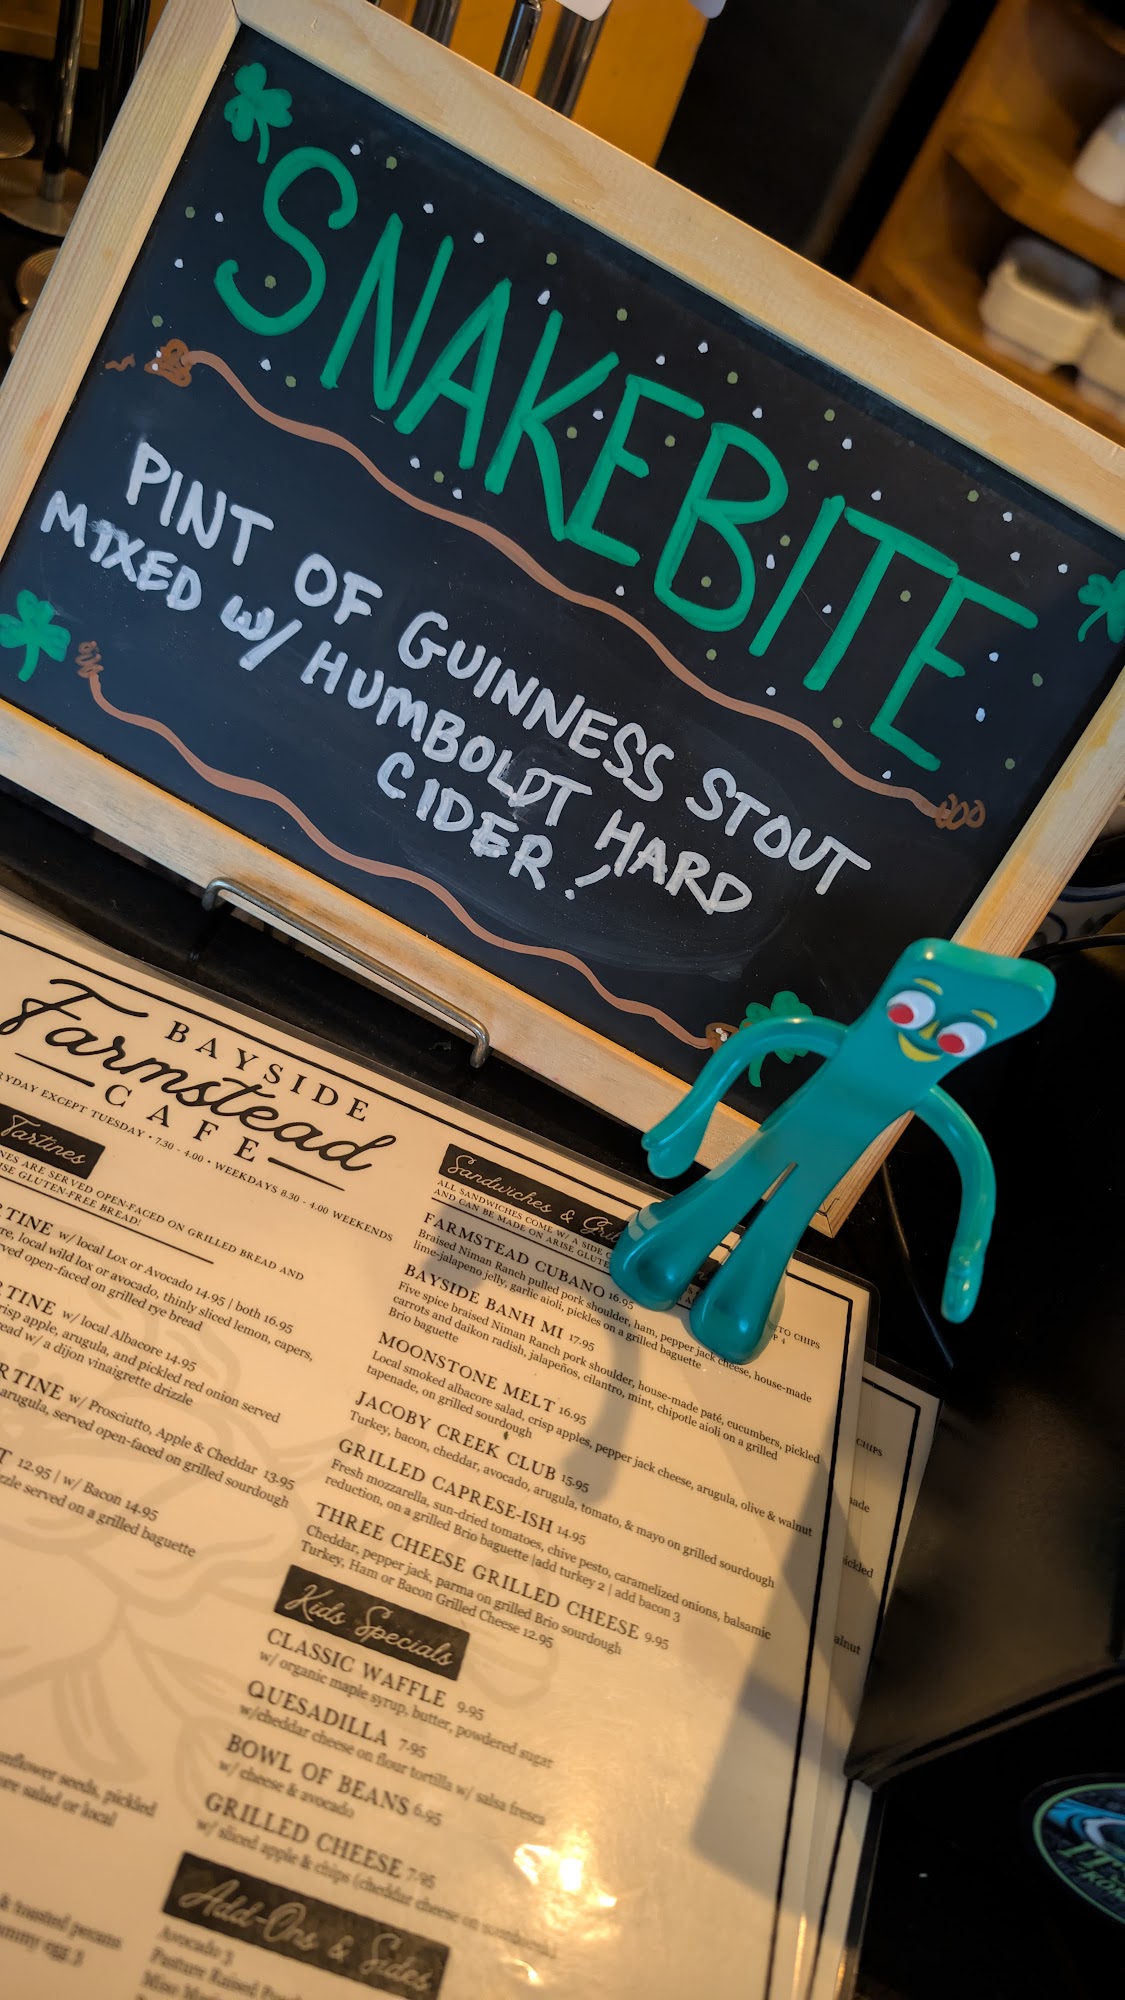 SNAKEBITE
PINT OF GUINNESS STOUT
MIXED W/ HUMBOLDT HARD
CIDER!
BAYSIDE
Farmstead
CAFE
EXCEPT TUESDAY • 7.30 - 4.00 • WEEKDAYS 8.30 - 4.00 WEEKENDS
Tartines
ARE SERVED OPEN-FACED ON GRILLED BREAD AND
GLUTEN-FREE BREAD!
w/ local Lox or Avocado 14.95 | both 16.95
local wild lox or avocado, thinly sliced lemon, capers,
served open-faced on grilled rye bread
w/ local Albacore 14.95
crisp apple, arugula, and pickled red onion served
w/ a dijon vinaigrette drizzle
w/ Prosciutto, Apple & Cheddar 13.95
arugula, served open-faced on grilled sourdough
12.95 | w/ Bacon 14.95
served on a grilled baguette
sunflower seeds, pickled
salad or local
& toasted pecans
egg 3
Sandwiches &
ALL SANDWICHES COME W/ A SIDE
AND CAN BE MADE ON ARISE
TO CHIPS
FARMSTEAD CUBANO 16.95
Braised Niman Ranch pulled pork shoulder, ham, pepper jack cheese, house-made
lime-jalapeno jelly, garlic aioli, pickles on a grilled baguette
BAYSIDE BANH MI 17.95
Five spice braised Niman Ranch pork shoulder, house-made paté, cucumbers, pickled
carrots and daikon radish, jalapeños, cilantro, mint, chipotle aioli on a grilled
Brio baguette
MOONSTONE MELT 16.95
Local smoked albacore salad, crisp apples, pepper jack cheese, arugula, olive & walnut
tapenade, on grilled sourdough
JACOBY CREEK CLUB 15.95
Turkey, bacon, cheddar, avocado, arugula, tomato, & mayo on grilled sourdough
GRILLED CAPRESE-ISH 14.95
Fresh mozzarella, sun-dried tomatoes, chive pesto, caramelized onions, balsamic
reduction, on a grilled Brio baguette |add turkey 2 | add bacon 3
THREE CHEESE GRILLED CHEESE 9.95
Cheddar, pepper jack, parma on grilled Brio sourdough
Turkey, Ham or Bacon Grilled Cheese 12.95
Kids Specials
CLASSIC WAFFLE 9.95
w/ organic maple syrup, butter, powdered sugar
QUESADILLA 7.95
w/cheddar cheese on flour tortilla w/ salsa fresca
BOWL OF BEANS 6.95
w/ cheese & avocado
GRILLED CHEESE 7.95
w/ sliced apple & chips (cheddar cheese on sourdough)
Add-Ons & Sides
Avocado 3
Pasture Raised
Miso
CHIPS